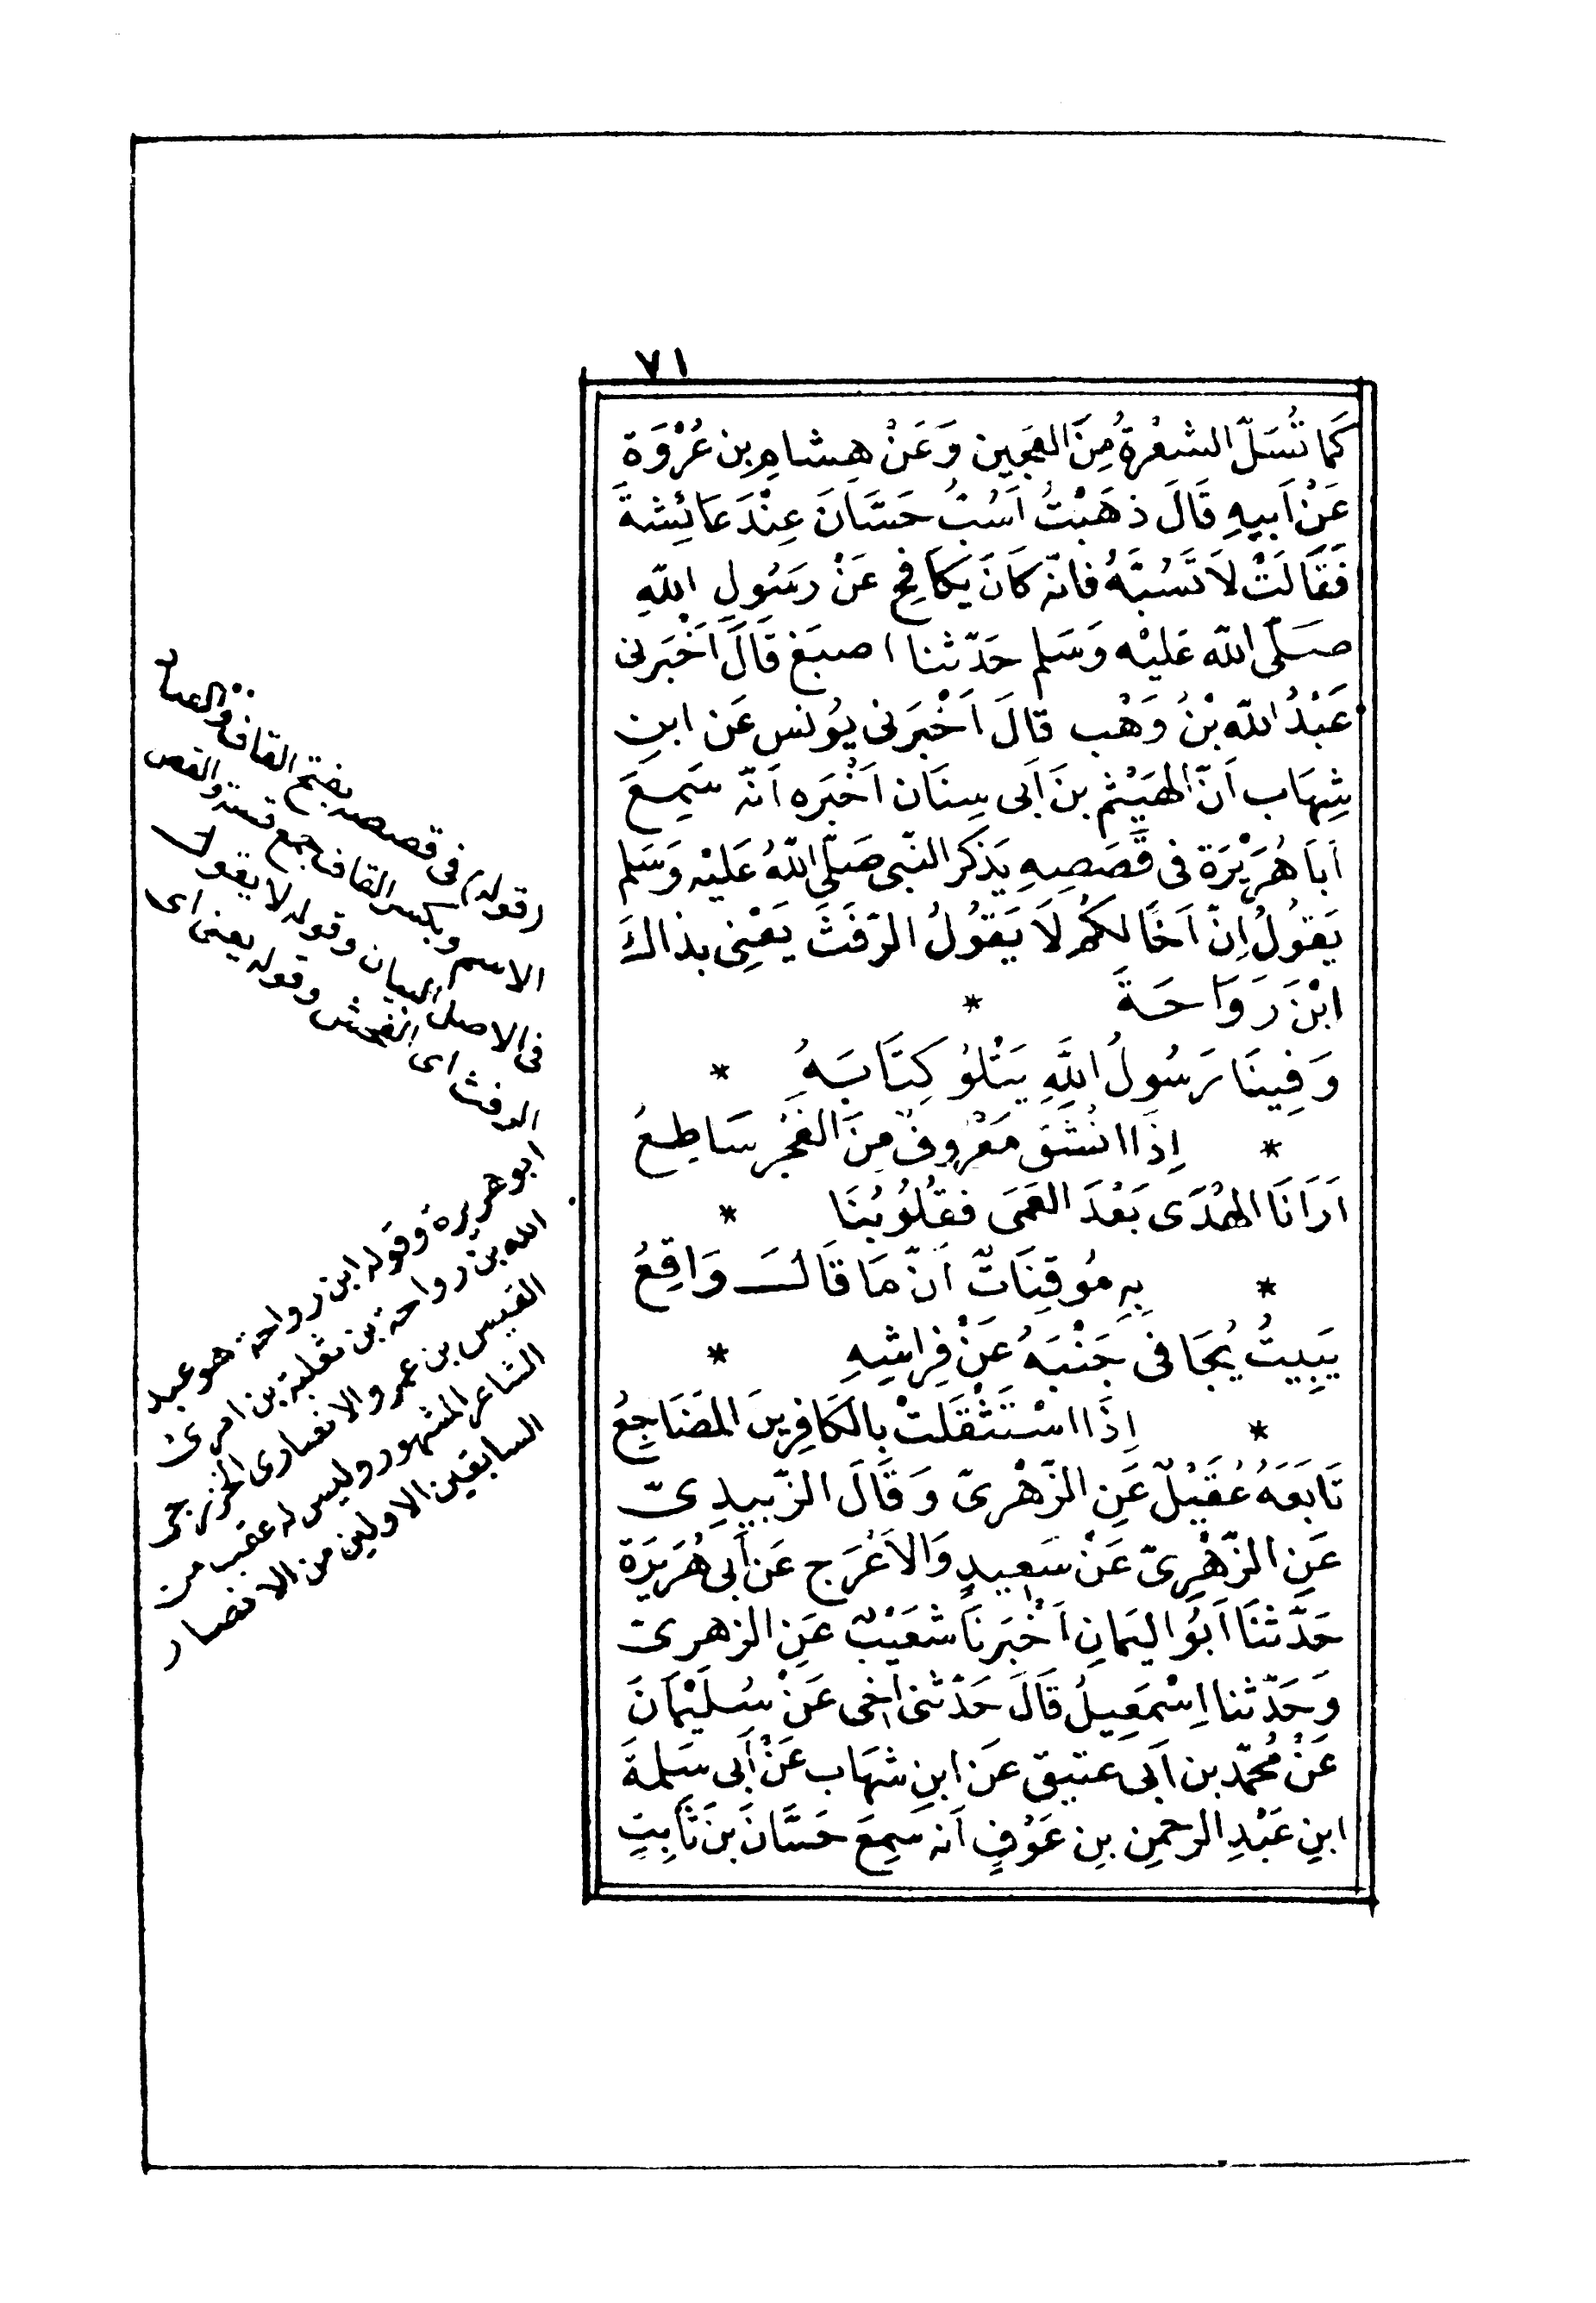 ٧١
كَما تُسَلّ الشعْرةُ مِنَ العَجين وَعَنْ هِشامِ بن عُرْوَة
عَنْ اَبيهِ قَالَ ذهَبْتُ اَسُبّ حَسَّانَ عِنْدَ عَائِشةَ
فَقَالَتْ لاَ تَسُبَّهُ فانّه كَانَ يكَافِح عَنْ رسَُولِ اللّهِ
صَلّى اللّه عَليْه وَسَلم حَدّثنا اصبَغ قَالَ اَخْبَرنى
عَبْدُ اللّه بْنُ وَهْب قالَ اَخْبَرَنى يوُنس عَن ابنِ
شِهَاب اَنّ الهَيْثم بنَ اَبى سِنَان اَخْبَره اَنّه سَمِعَ
اَباَ هُرَيْرَة فى قَصَصِهِ يَذكر النّبى صَلّى اللّهُ عَلَيْه وَسَلم
يَقوُلُ اِنّ اَخًا لكمُ لاَ يَقوُلُ الرّفَثَ يَعْنِى بذاكَ
ابْنَ رَوَاحَةَ *
وَفِينَا رَسُولُ اللَّهِ يَتْلوُ كِتَابَهُ *
* اِذَا انْشَقّ مَعْرُوفٌ مِنَ الفَجْرِ سَاطِعُ
اَرَانَا الهُدَى بَعْدَ العَمَى فقلُوُبُنَا *
* بِهِ مُوقِنَاتٌ اَنّ مَا قَالَ وَاقِعُ
يَبِيتُ يُجَافى جَنْبَهُ عَنْ فِراشِهِ *
* اِذَا اسْتَثْقَلَتْ بِالكَافِرِينَ المَضَاجِعُ
تَابَعَهُ عُقَيْلٌ عَنِ الزّهْرىّ وَقَالَ الزّبيدِىّ
عَنِ الزّهْرِىّ عَنْ سَعِيدٍ وَالاَعْرَج عَن أَبى هُرَيَرَة
حَدَّثنَا اَبوُ اليَمانِ اَخْبَرنَا شعَيْبٌ عَنِ الزهرى
وَحَدّثنا اِسْمَعِيلُ قَالَ حَدّثنى اخِى عَنْ سُلَيْمَانَ
عَنْ مُحَمّد بن اَبى عتيق عَن ابنِ شهَاب عَنْ أَبى سَلمةَ
ابنِ عَبْدِ الرحمنِ بنِ عَوْفٍ اَنه سَمِعَ حَسَّانَ بنَ ثَابِتٍ
(قوله) فى قصصه بفتح القاف والصاد
الاسم وبكسر القاف جمع قصة والقص
فى الاصل البيان وقوله لا يقول
الرفث اى الفحش وقوله يعنى اى
ابو هريرة وقوله ابن رواحة هو عبد
الله بن رواحة بن ثعلبة بن امرئ
القيس بن عمرو الانصارى الخزرجى
الشاعر المشهور وليس له عقب من
السابقين الاولين من الانصار